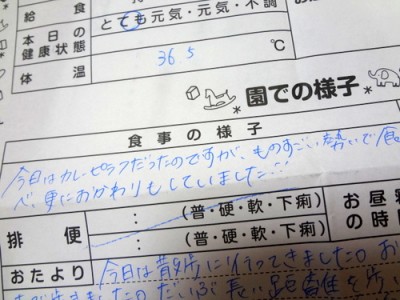 給食
本日の健康状態 とても元気・元気・不調
体温 36 5 ℃
園での様子
食事の様子
今日はカレーピラフだったのですが、ものすごい勢いで食
べ、更におかわりもしていました…!
排便 : (普・硬・軟・下痢) お昼
: (普・硬・軟・下痢) の時間
おたより 今日は散歩に行ってきました。お
だいぶ長い距離を歩い